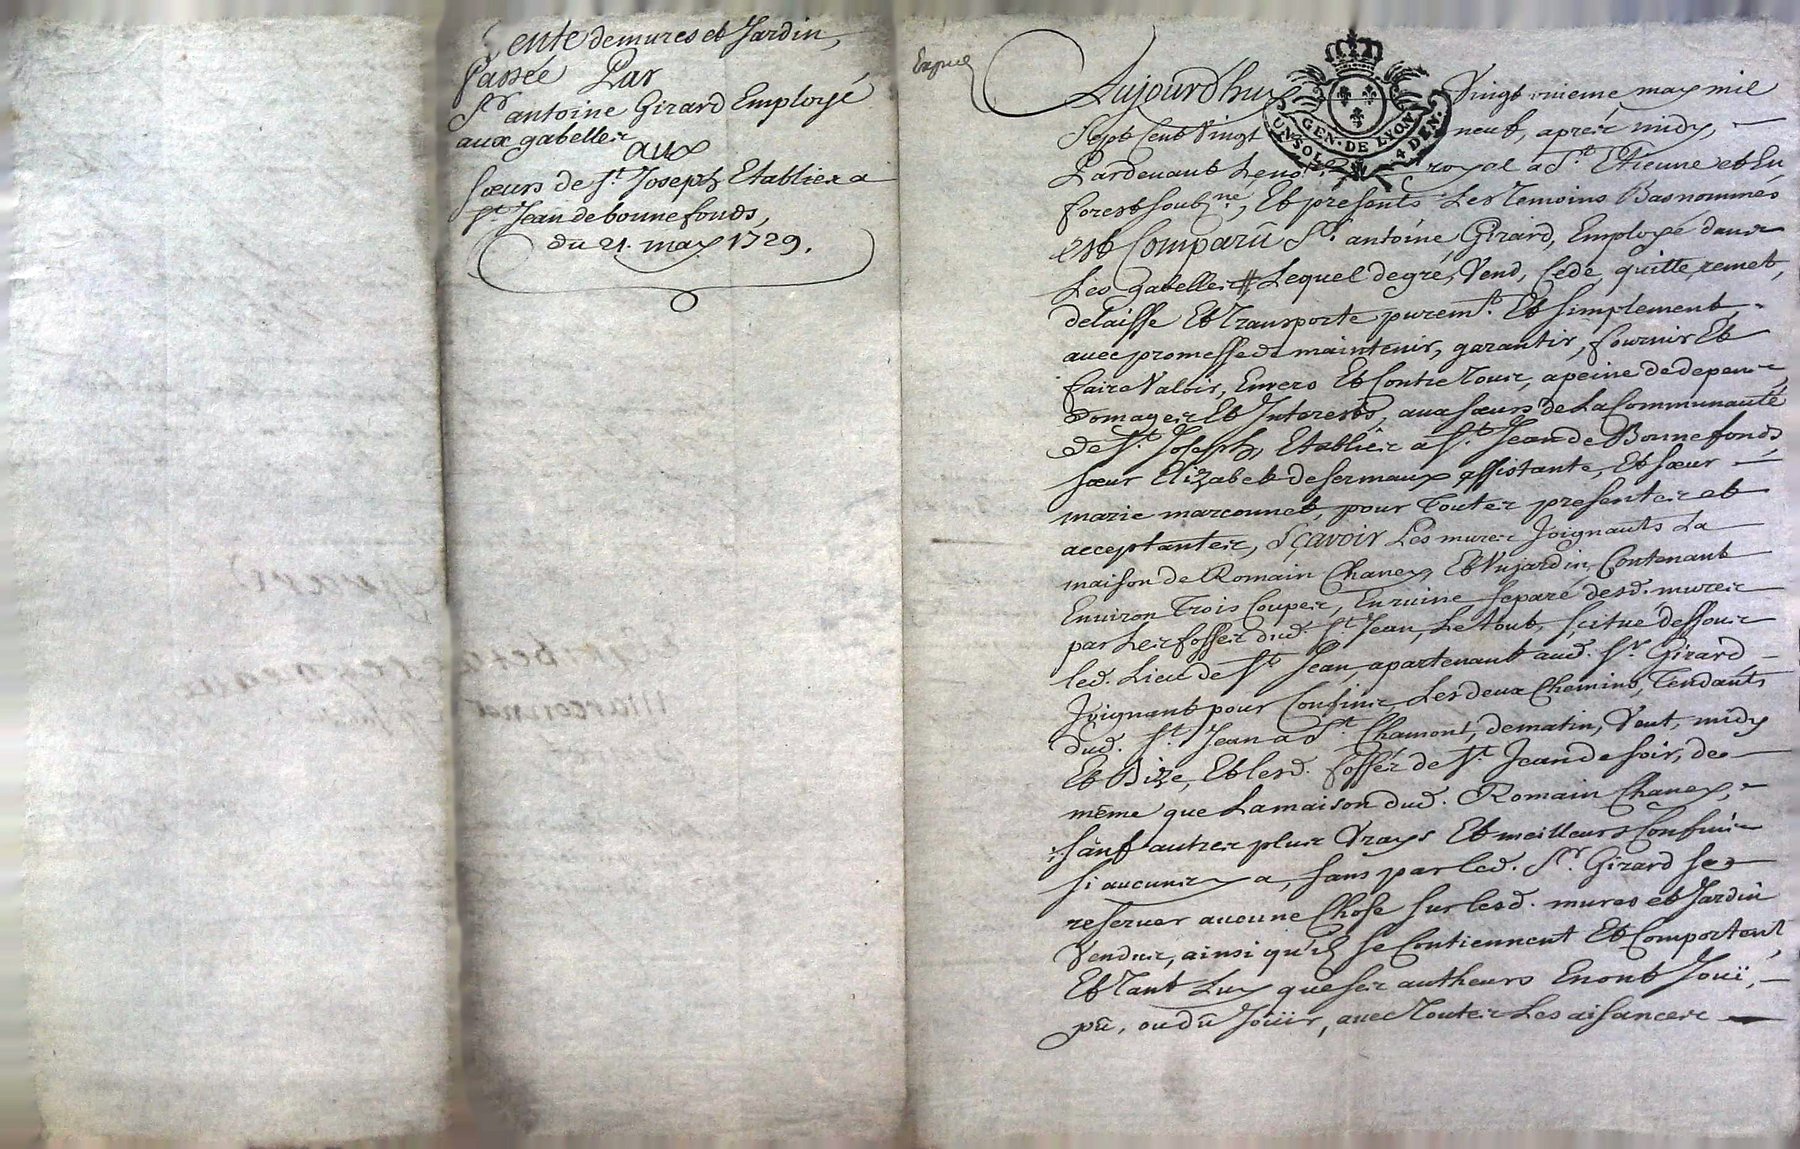 Vente demures et Jardin,
Passée Par
Sr. antoine Girard Employé
aux gabelles
aux
sœurs de St. Joseph Etablies a
St. Jean de bonnefonds,
du 21. may 1729.
Aujourd'huy Vingt unieme may mil
Sept Cent Vingt neuf, aprés midy,
Pardevant Le no.re royal a St. Etienne et En
forest soubz.né, Et presents Les Temoins Basnommés
est Comparû Sr. antoine Girard, Employé dans
Les gabelles # Lequel degré, Vend, Cede, quitte, remet,
delaisse Et Transporte purem.t Et simplement,
avec promesse de maintenir, garantir, fournir Et
faire Valoir, Envers Et Contre Tous, a peine de depens
domages Et Interests, aux sœurs de La Communauté
de St. Joseph, Etablies a St. Jean de Bonnefonds,
sœur Elizabet de sermaux assistante, Et sœur
marie marconnet, pour Toutes presentes et
acceptantes, Sçavoir Les mures Joignants La
maison de Romain Chaney, Et Vn jardin, Contenant
Environ Trois Coupes, En ruine separé desd. mures
par Les fossés dud. St. Jean, Le tout, scitué dessous
led. Lieu de St. Jean, apartenant aud. Sr. Girard
Joignant pour Confins, Les deux Chemins, Tendants
dud. St. Jean a St. Chamont, de matin, Vent, midy
Et Bize, Et lesd. fossés de St. Jean de soir, de
même que La maison dud. Romain Chaney,
sauf autres plus Vrays Et meilleurs Confins
si aucuns y a, sans par led. Sr. Girard se
reserver aucune Chose sur lesd. mures et Jardin
Vendus, ainsi qu'ils se Contiennent Et Comportent,
Et Tant Luy que ses autheurs En ont Joüi,
pû, ou dû Joüir, avec Toutes Les aisances
GEN. DE LYON
UN SOL 4 DEN.